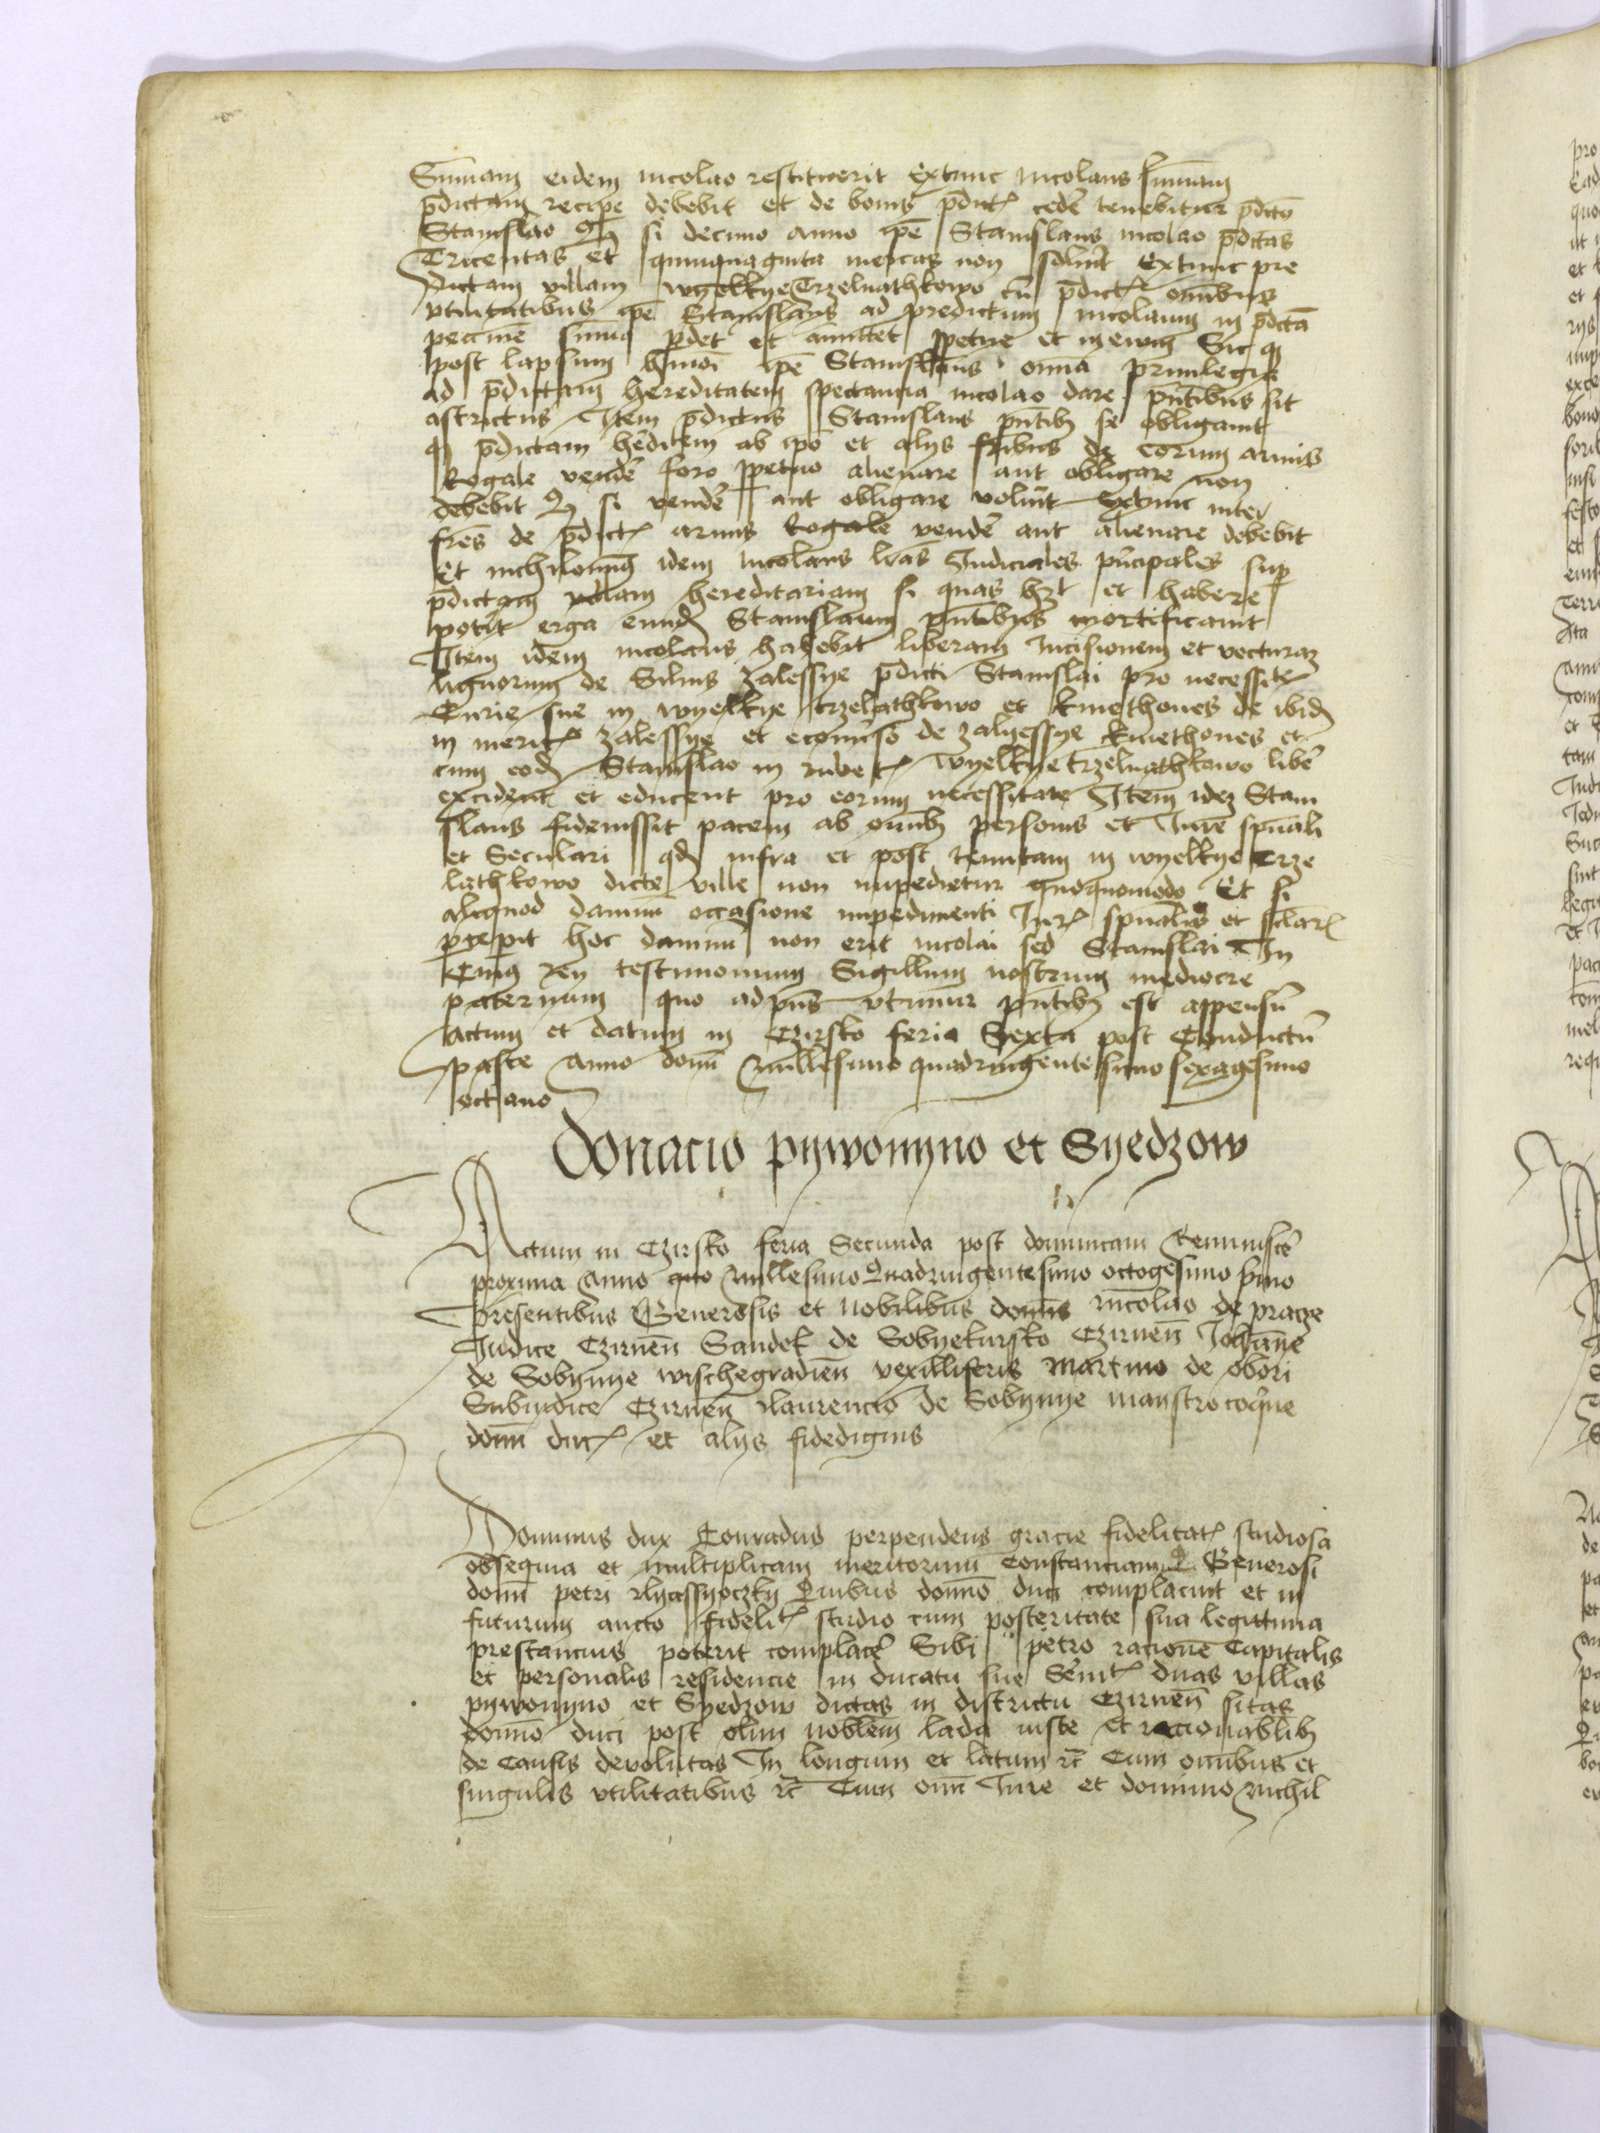 Sumam eidem nicolao restituerit extunc nicolaus sumam
p̄dictam recipe debebit et de bonis p̄dict cedē tenebitur p̄dicto
Stanislao si decimo anno ip̄e Stanislaus nicolao p̄dictas
Tricentas et quinquaginta mrcas non soluit extunc pre
dictam villam wyelkye Trzeluathkowo cū p̄dict omībus
vtilitatibus ip̄e Stanislaus ad predictum nicolaum in p̄dictā
pecunie suma p̄det et amittet ppetue et in ewm Sic q
post lapsum hmōi ip̄e Stanislaus om̄ia priuilegia
ad p̄dictam hereditatem spectancia nicolao dare p̄ntibus sit
astrictus Item p̄dictus Stanislaus p̄ntib se obligauit
q p̄dictam hēditem ab ip̄o et alys fr̄ibus de eorum armis
Rogale vendē foro ppetuo alienare aut obligare non
debebit si vendē aut obligare voluit extunc inter
fr̄es de p̄dict armis Rogale vendē aut alienare debebit
Et nichilomīg idem nicolaus lr̄as Iudiciales p̄ncipales sup
p̄dictam villam hereditariam si quas hzt et habere
potit erga eund Stanislaum p̄ntibus mortificauit
Item idem nicolaus habebit liberam Incisionem et vecturam
lignorum de Siluis zalessye p̄dicti Stanislai pro necessite
Curie sue in wyelkye trzelathkowo et kmethones de ibid
in merit zalessye et ecōuerso de zalyessye kmethones et
cum eod Stanislao in rubet wyelkye Trzeluathkowo libē
excident et educent pro eorum necessitate Item idez Stani
slaus fideiussit pacem ab omīb personis et Iure spūali
et Seculari qd infra et post tenutam in wyelkye Trze
lathkowo dicte ville non impedietur quoquomodo Et si
aliquod damnū occasione impedimenti Iur spūalis et sclar
p̄ceperit hoc damnū non erit nicolai sed Stanislai In
Cuius rey testimonium Sigillum nostrum mediocre
paternum quo ad p̄ns vtimur p̄ntib est appensū
Actum et datum in Czirsko feria Sexta post Conductū
pasce Anno domī Millesimo quadringentesimo sexagesimo
octauo
Donacio pywonyno et Syedzow
Actum in Czirsko feria Secunda post dominicam Reminiscē
proxima Anno quo Millesimo Quadringentesimo octogesimo p̄mo
Presentibus Generosis et nobilibus domīs Nicolao de prage
Iudice Czirnēn Sandek de Sobyekursko Czirnēn Iohane
de Sobynye wischegradien vexilliferis Martino de obori
Subiudice Czirnēn Laurencio de Sobynye maystro coqne
domī duc et alys fidedignis
Dominus dux Conradus perpendens gracie fidelitat studiosa
obsequia et multiplicam meritorum constanciam Generosi
domī petri Quibus domīo duci complacuit et in
futurum aucto fidelit studio cum posteritate sua legittima
prestancius poterit complacē Sibi petro racione Capitalis
et personalis residencie in ducatu sue Serīt duas villas
pywonyno et Syedzow dictas in districtu Czirnēn sitas
domīo duci post olim noblem lada iuste et racionablib
de causis deuolutas In longum et latum rc̄ Cum omībus et
singulis vtilitatibus rc̄ Cum omī Iure et dominio Nichil